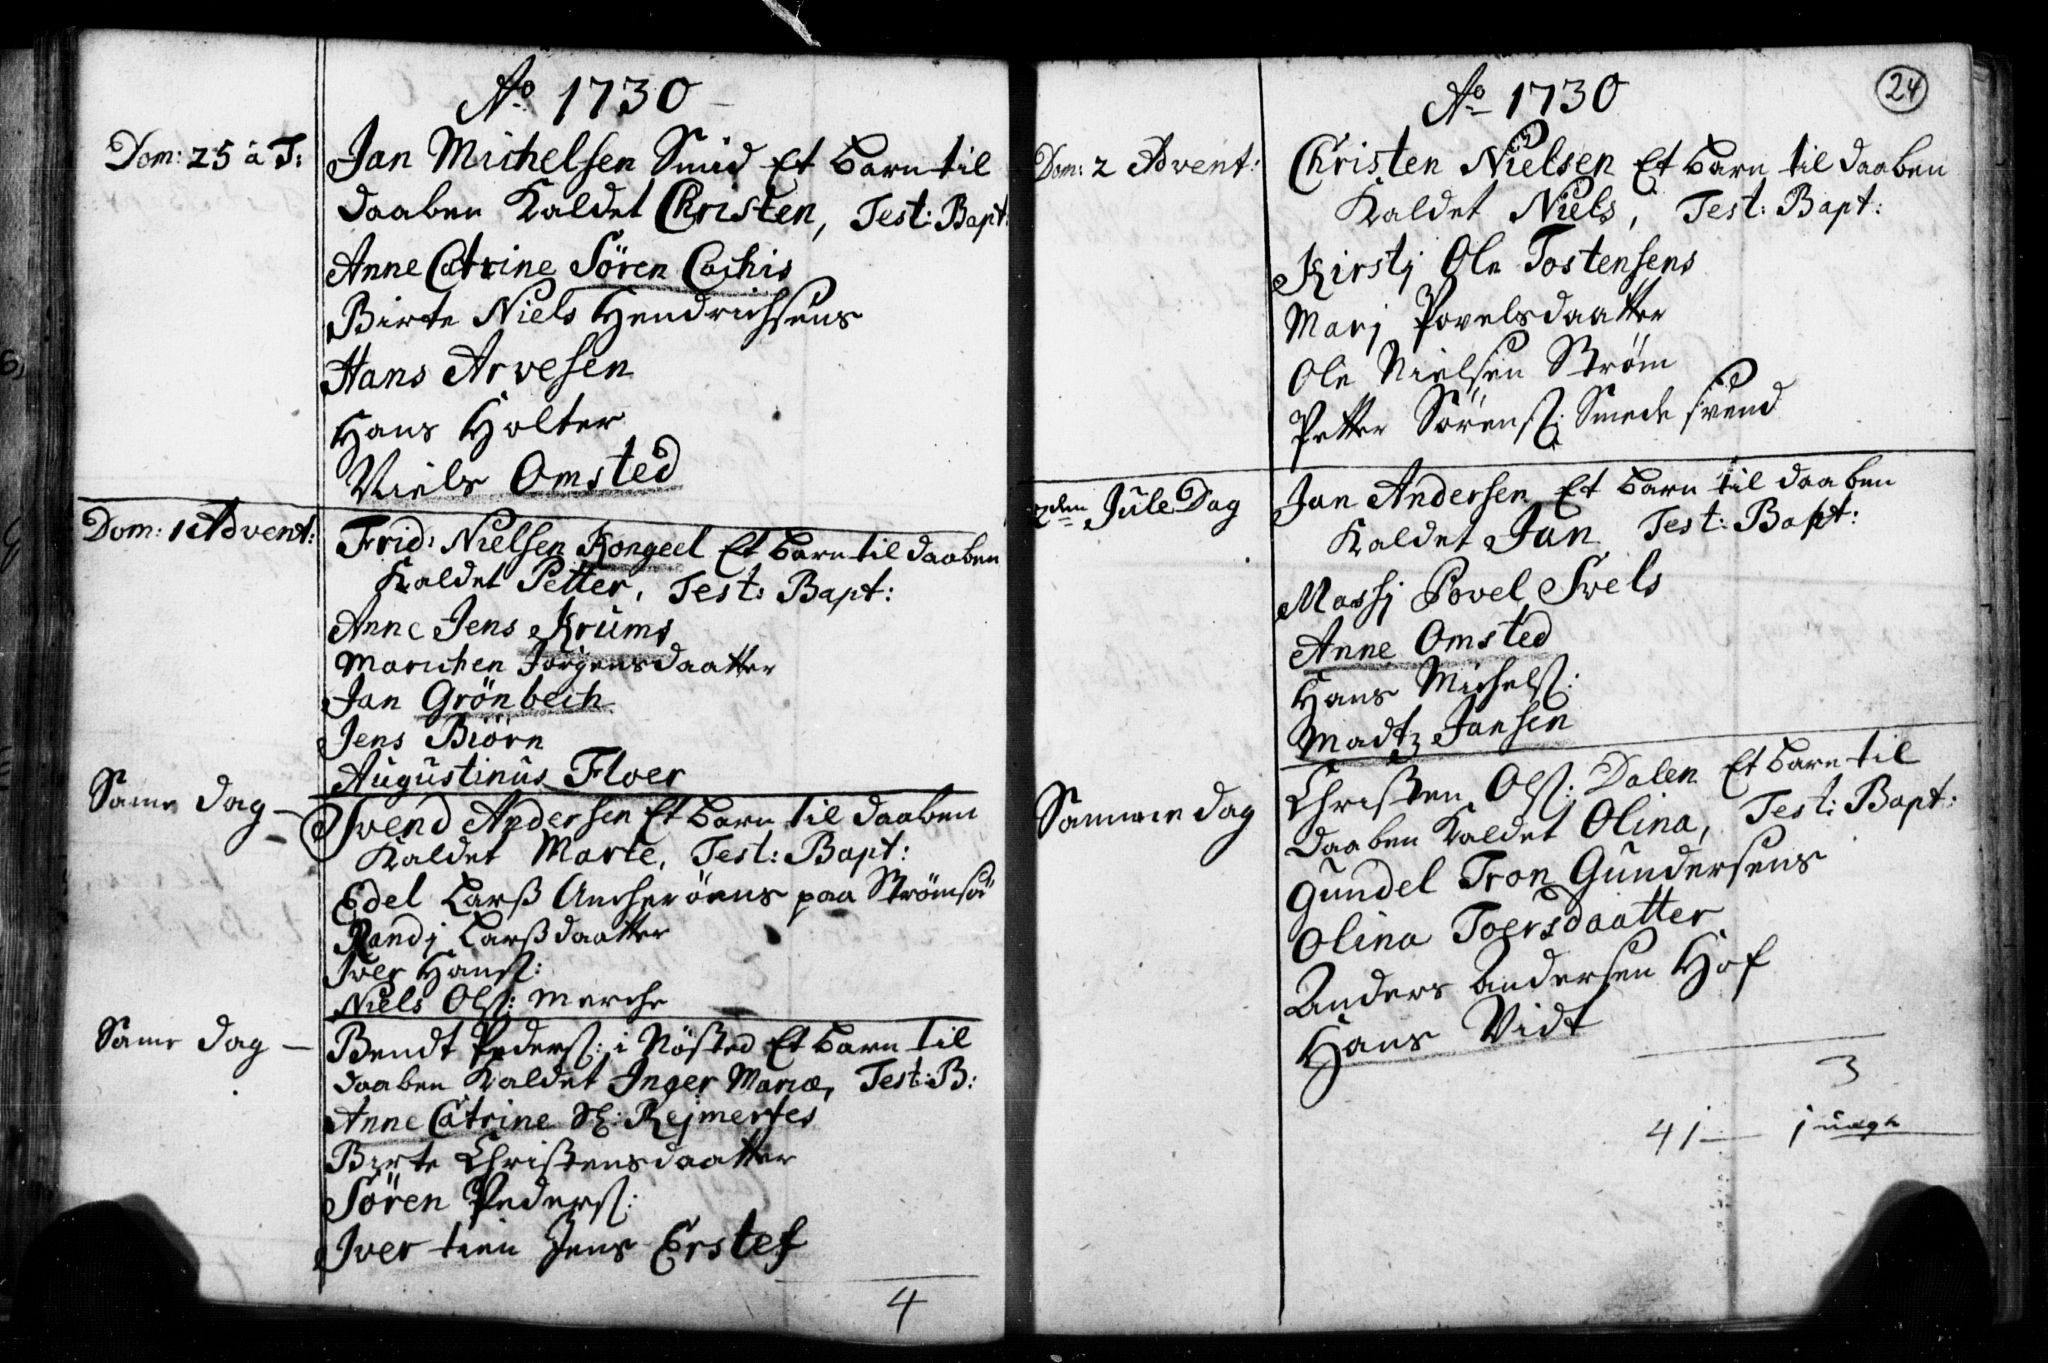 Ao 1730
Dom: 25 à T: Jan Michelsen Smid Et barn til
daaben Kaldet Christen, Test: Bapt:
Anne Catrine Sören Cochis
Birte Niels Hendrichsens
Hans Arvesen
Hans Holter
Niels Omsted
Dom: 1 Advent: Frid: Nielsen Kongeel Et barn til daaben
Kaldet Petter, Test: Bapt:
Anne Jens Krums
Marichen Jörgensdaatter
Jan Grönbech
Jens Biörn
Augustinus Floer
Same dag — Svend Andersen Et barn til daaben
Kaldet Marte, Test: Bapt:
Edel Larß Ancheröens paa Strömsöe
Randj Larßdaatter
Iver Hanß:
Niels Olß: Merche
Same dag — Bendt Pederß: i Nösted Et barn til
daaben Kaldet Inger Maria, Test: B:
Anne Catrine Sl: Rejmertes
Birte Christensdaatter
Sören Pederß:
Iver tien Jens Erstef
4
24
Ao 1730
Dom: 2 Advent: Christen Nielsen Et barn til daaben
Kaldet Niels, Test: Bapt:
Kirstj Ole Tostensens
Marj Povelsdaatter
Ole Nielsen Ström
Petter Sörenß: Smede svend
2den Jule Dag Jan Andersen Et barn til daaben
Kaldet Jan Test: Bapt:
Massj Povel Svels
Anne Omsted
Hans Michelß:
Madtz Jansen
Samme dag Christen Olß: Dalen Et barn til
daaben Kaldet Olina, Test: Bapt:
Gundel Tron Gundersens
Olina Toersdaatter
Anders Andersen Hof
Hans Vidt
3
41 — j uægte